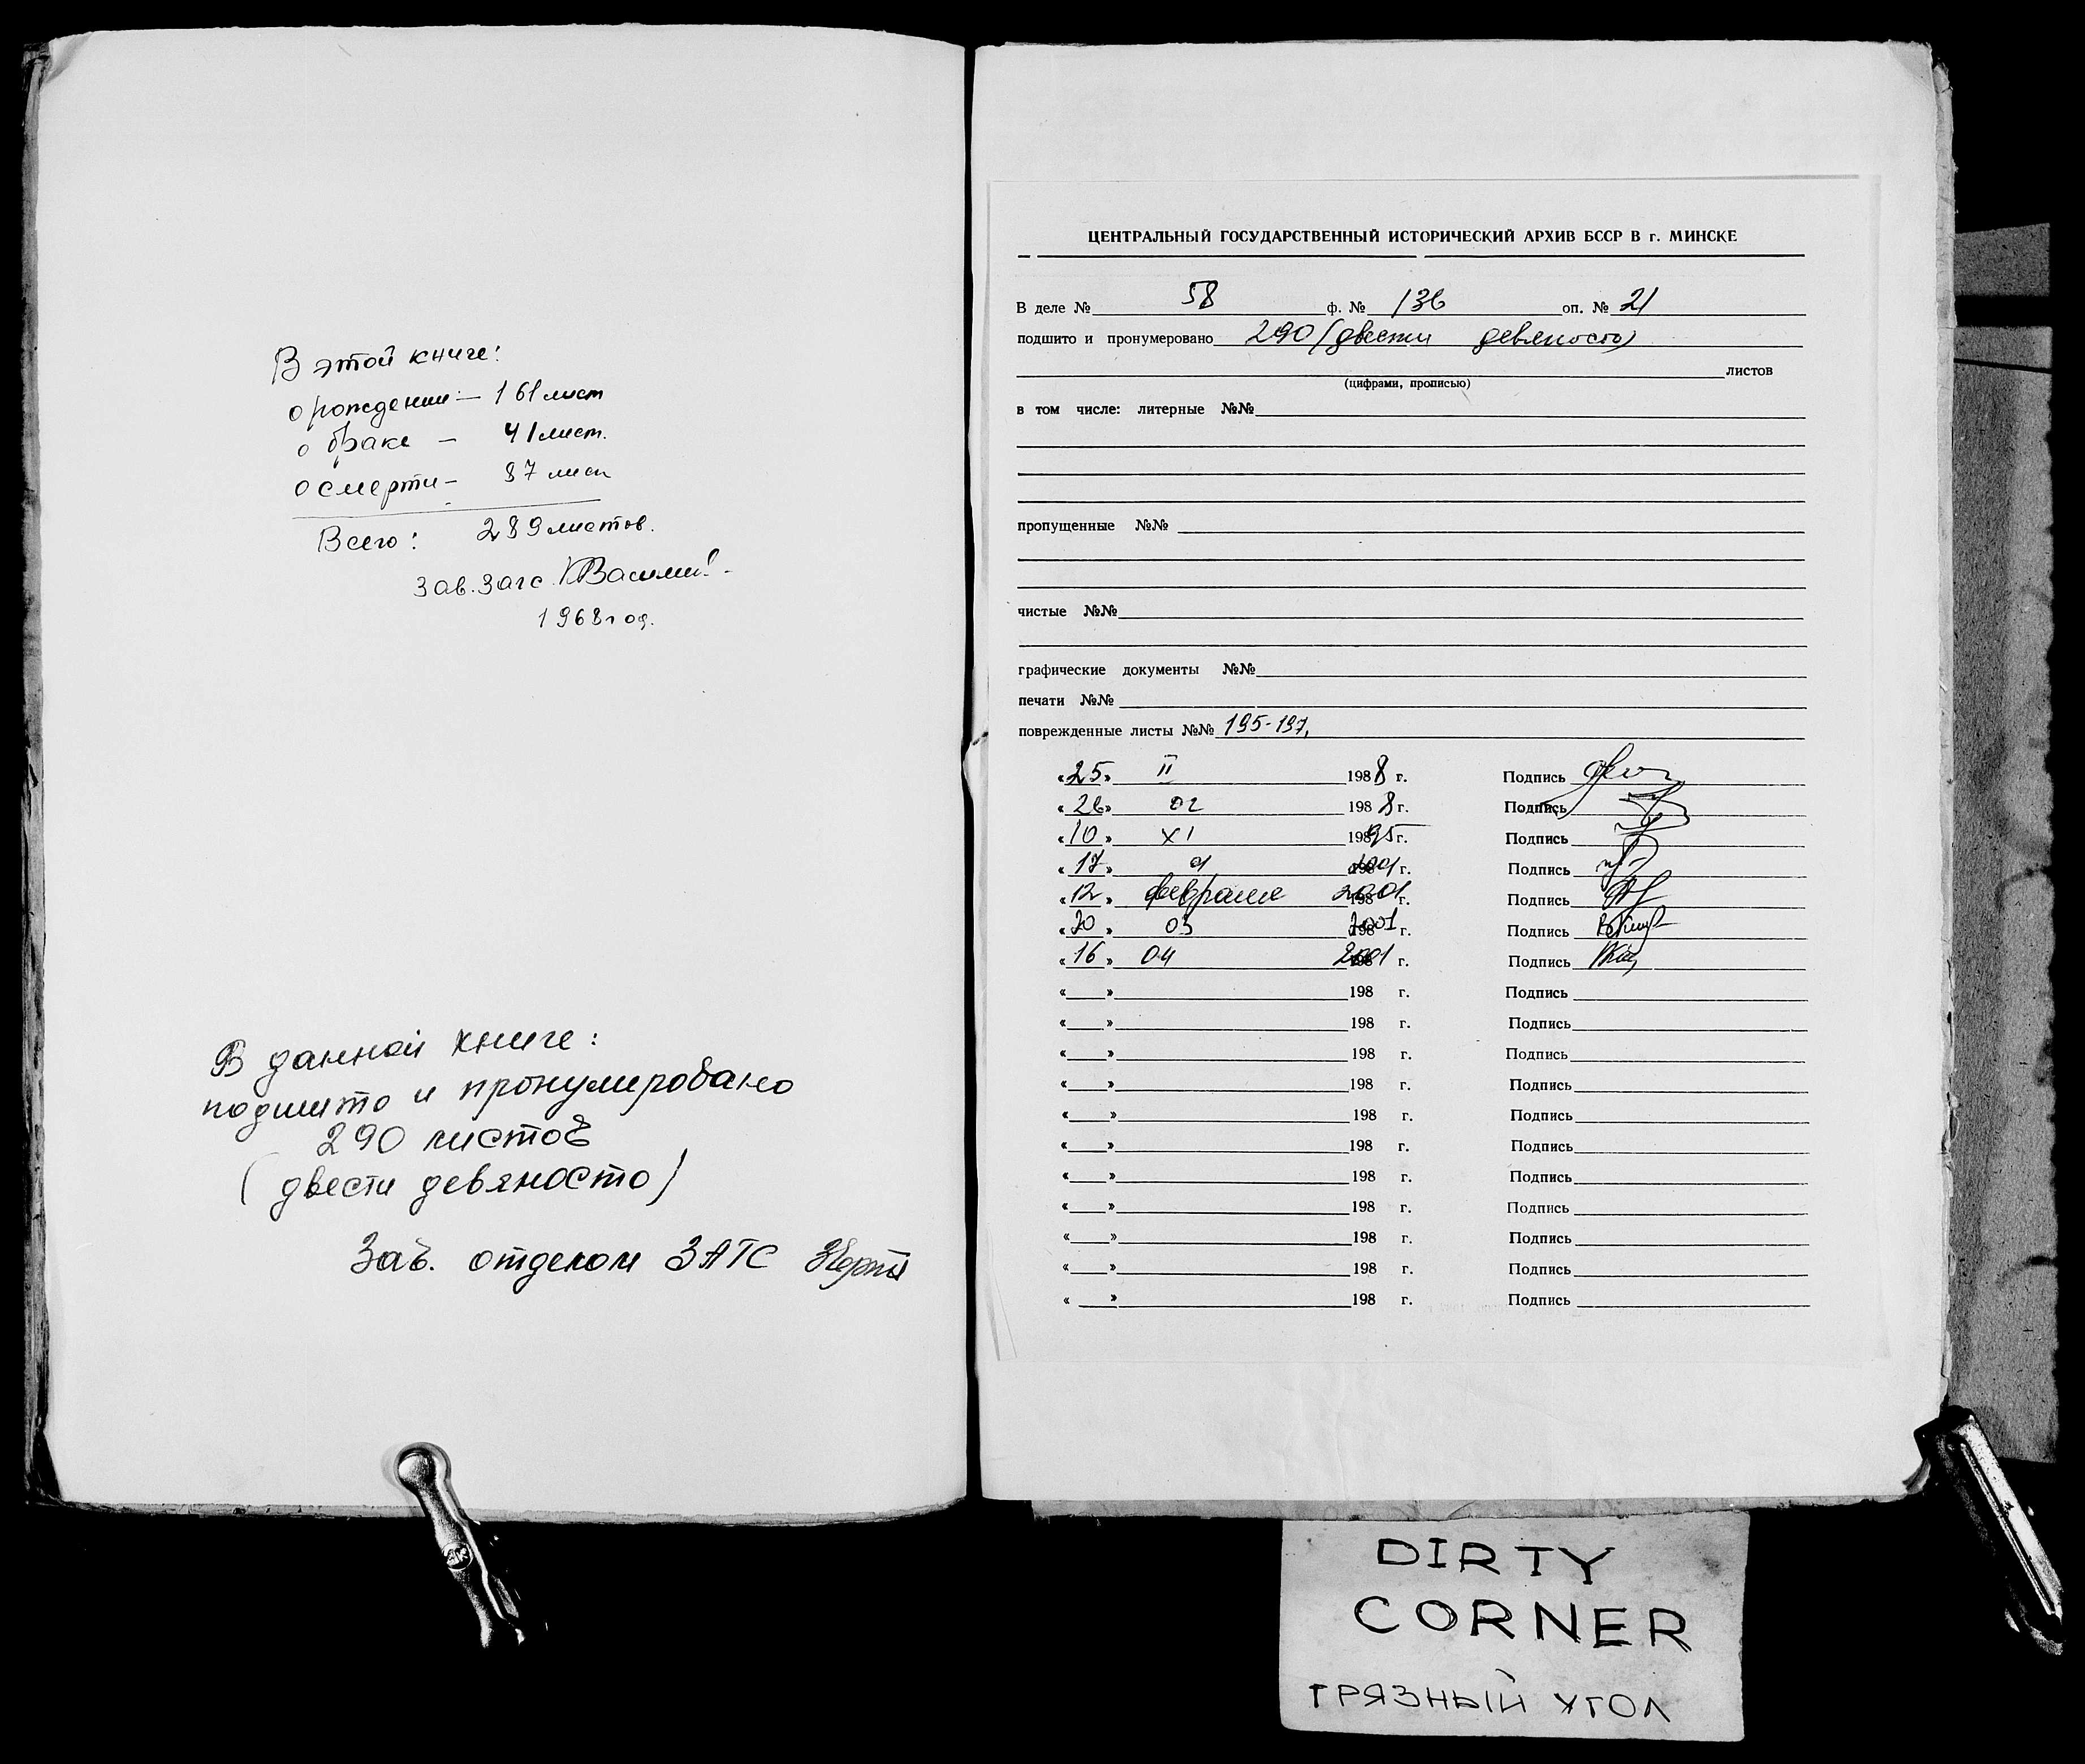 В этой книге:
о рождении – 161 лист
о браке – 41 лист.
о смерти – 87 лист
Всего: 289 листов.
Зав. Загс
1968 год.
В данной книге:
подшито и пронумеровано
290 листов
(двести девяносто)
Зав. отделом ЗАГС
ЦЕНТРАЛЬНЫЙ ГОСУДАРСТВЕННЫЙ ИСТОРИЧЕСКИЙ АРХИВ БССР В г. МИНСКЕ
В деле № 58 ф. № 136 оп. № 21
подшито и пронумеровано 290 (двести девяносто)
листов
(цифрами, прописью)
в том числе: литерные №№
пропущенные №№
чистые №№
графические документы №№
печати №№
поврежденные листы №№ 195-197,
«25» II 1988 г. Подпись
«26» 02 1988 г. Подпись
«10» XI 1995 г. Подпись
«17» 2001 г. Подпись
«12» февраля 2001 г. Подпись
«20» 03 2001 г. Подпись
«16» 04 2001 г. Подпись
« » 198 г. Подпись
« » 198 г. Подпись
« » 198 г. Подпись
« » 198 г. Подпись
« » 198 г. Подпись
« » 198 г. Подпись
« » 198 г. Подпись
« » 198 г. Подпись
« » 198 г. Подпись
« » 198 г. Подпись
« » 198 г. Подпись
DIRTY
CORNER
ГРЯЗНЫЙ УГОЛ